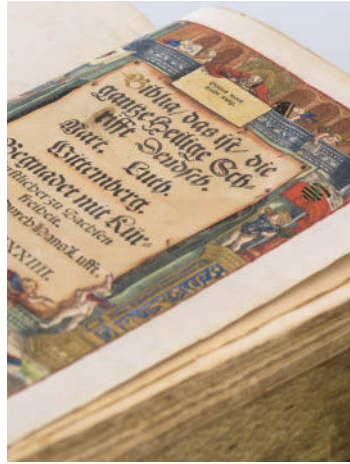 Gottes wort
bleibt ewig.
Biblia/ das ist/ die
gantze Heilige Sch-
rifft Deudsch.
Mart. Luth.
Wittemberg.
Begnadet mit Kür-
furstlicher zu Sachsen
freiheit.
durch Hans Lufft.
XXXIIII.